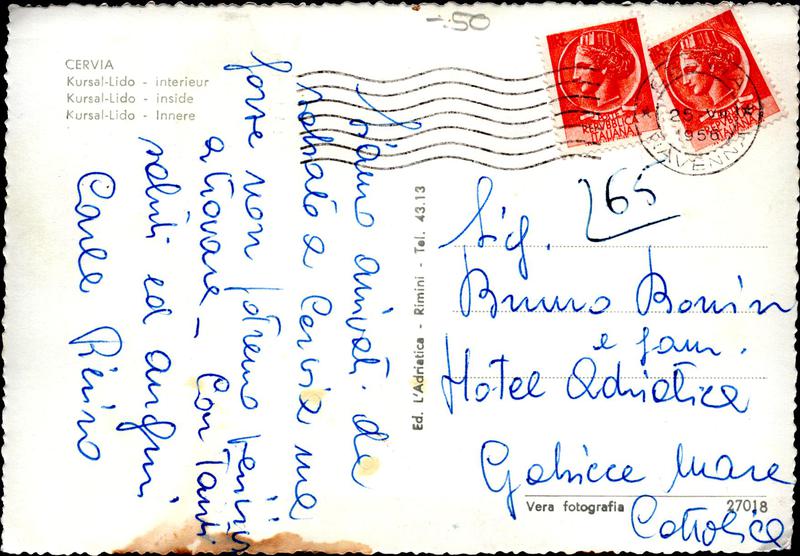 CERVIA
Kursal-Lido - interieur
Kursal-Lido - inside
Kursal-Lido - Innere
-.50
REPUBBLICA
ITALIANA
REPUBBLICA
ITALIANA
25. VII
1956
RAVENNA
Siamo arrivati da
sabato a Cervia ma
forse non potremo venirvi
a trovare - Con tanti
saluti ed auguri
Carla Pierino
Ed. L'Adriatica - Rimini - Tel. 43.13
265
Sig.
Bruno Bonin
e fam.
Hotel Adriatica
Gabicce Mare
Cattolica
Vera fotografia
27018